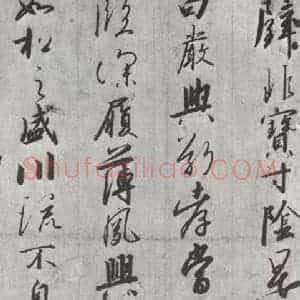 璧非寶寸陰是
曰嚴與敬孝當
臨深履薄夙興
如松之盛川流不息
Shufaziliao.COM